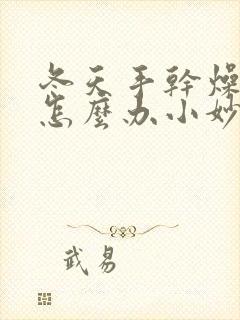 冬天手幹燥
怎麼办小妙
武易